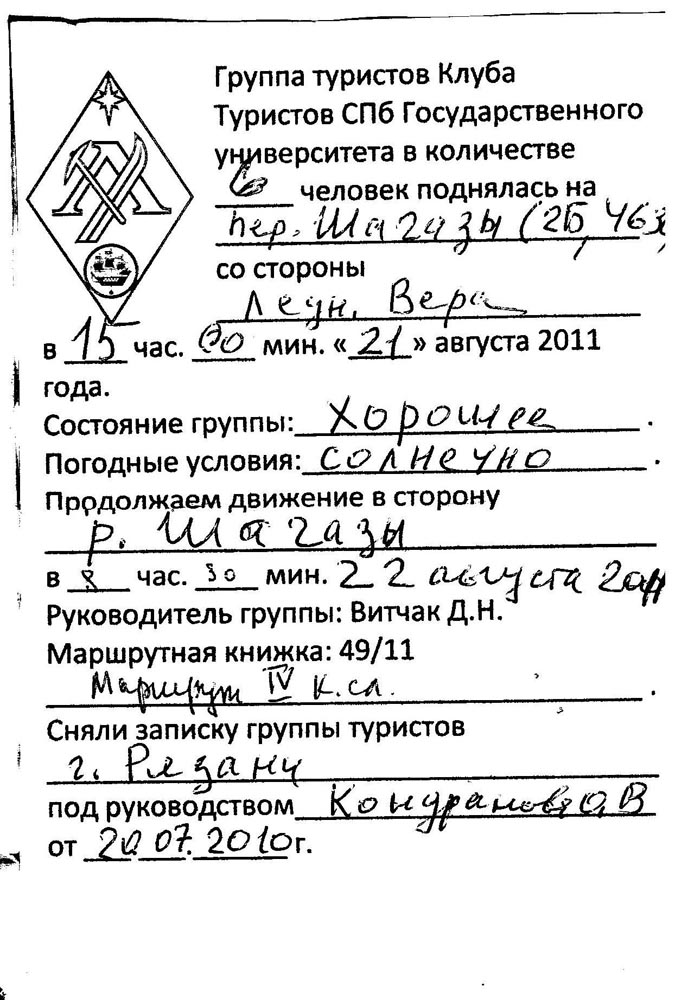 Группа туристов Клуба
Туристов СПб Государственного
университета в количестве
6 человек поднялась на
пер. Шагазы (2Б, 463
со стороны
Ледн. Вера
в 15 час. 00 мин. «21» августа 2011
года.
Состояние группы: Хорошее .
Погодные условия: солнечно .
Продолжаем движение в сторону
р. Шагазы
в 8 час. 30 мин. 22 августа 2011
Руководитель группы: Витчак Д.Н.
Маршрутная книжка: 49/11
Маршрут IV к.сл. .
Сняли записку группы туристов
г. Рязани
под руководством
от 20.07.2010г.